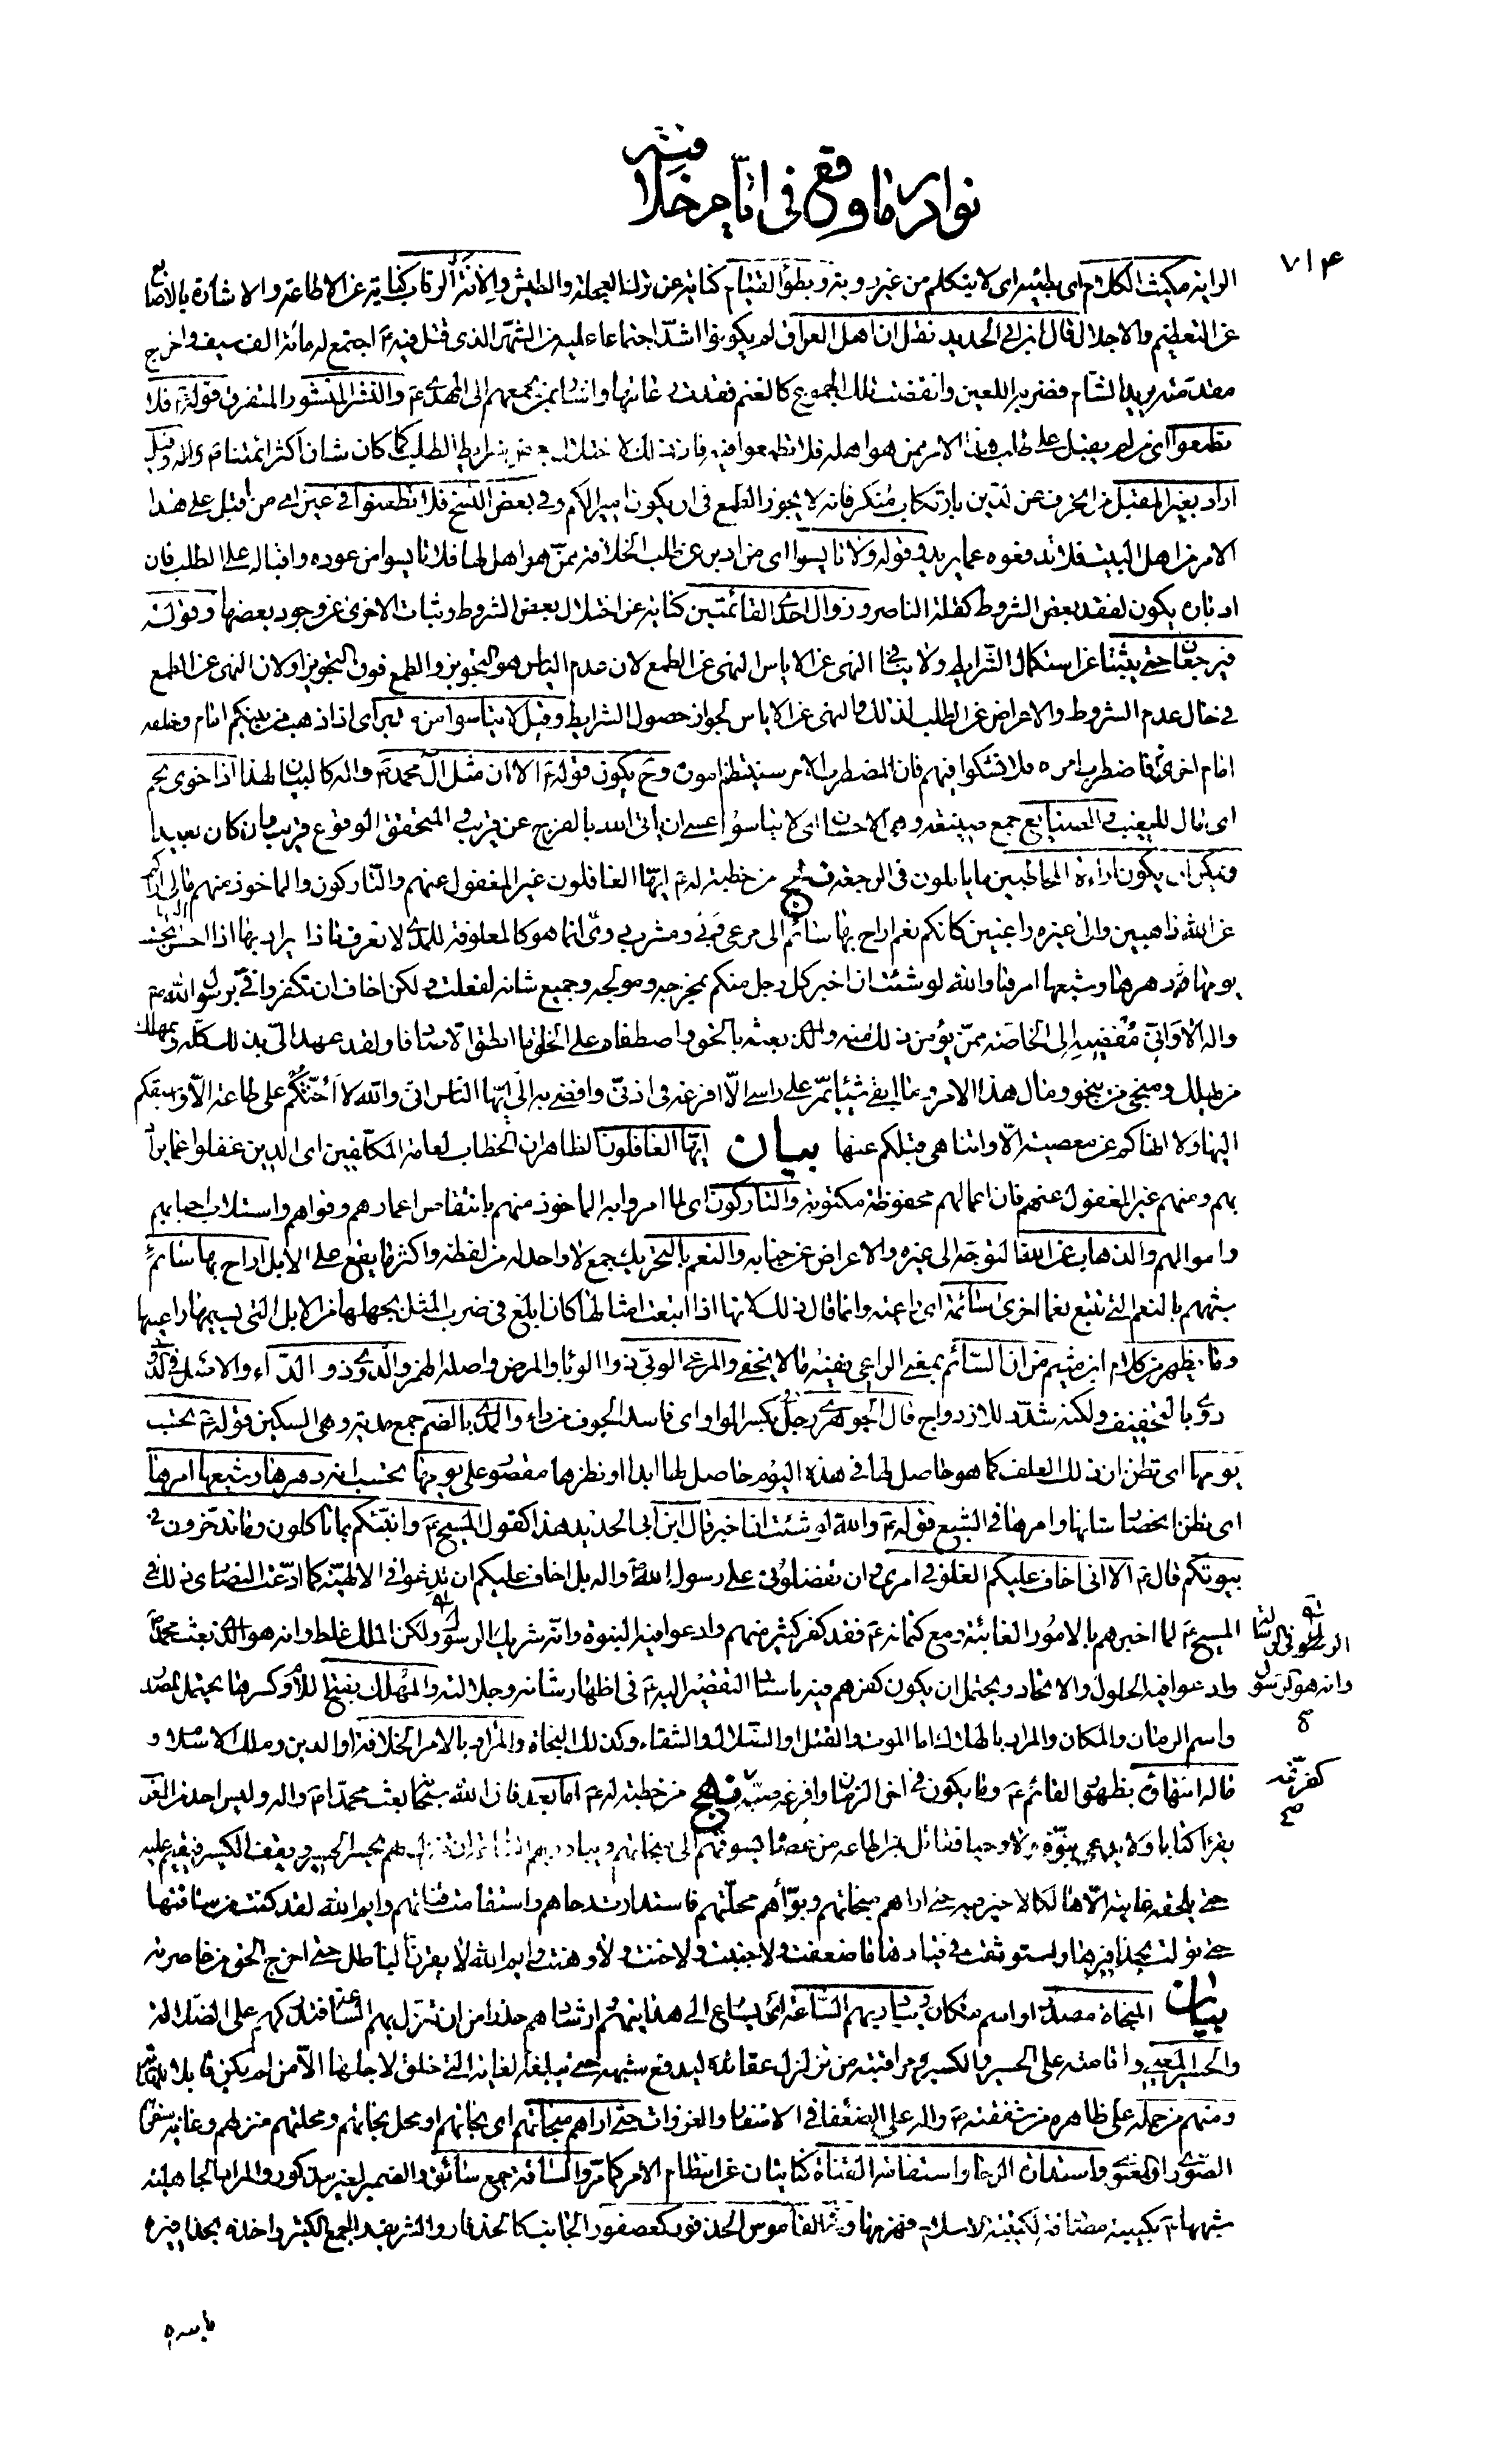 نوادر ما وقع فى ايّام خلافته
٧١٤
الراية مكيث الكلام اى بطيئه اى لا يتكلم من غير روية وبطؤ القيام كناية عن ترك العجلة والطيش والانة الرقاب كناية عن الاطاعة والاشارة بالاصابع
عن التعظيم والاجلال قال ابن ابى الحديد نقل ان اهل العراق لم يكونوا اشدّ اجتماعا عليه من الشهر الذى قتل فيه ع اجتمع له مائة الف سيف واخرج
مقدمته يريد الشام فضربه اللعين وانفضت تلك الجموع كالغنم فقدت راعيها واشار بمن يجمعهم الى المهدى ع والنشر المنشور المتفرق قوله ع فلا
تطمعوا اى من لم يقبل على طلب هذا الامر ممن هو اهله فلا تطمعوا فيه فان ذلك لاختلال بعض شرايط الطلب كما كان شان اكثر ائمتنا ع وقيل
اراد بغير المقبل من انحرف عن الدين بارتكاب منكر فانه لا يجوز الطمع فى ان يكون اميرا لكم وفى بعض النسخ فلا تطعنوا فى عين اى من اقبل على هذا
الامر من اهل البيت فلا تدفعوه عما يريد وقوله ولا تايسوا اى من ادبر عن طلب الخلافة ممن هو اهل لها فلا تايسوا من عوده واقباله على الطلب فان
ادباره يكون لفقد بعض الشروط كقلة الناصر وزوال احدى القائمتين كناية عن اختلال بعض الشروط وثبات الاخرى عن وجود بعضها وقوله
فترجعا حتى يثبتا عن استكمال الشرايط ولا ينافى النهى عن الاياس النهى عن الطمع لان عدم الياس هو التجويز والطمع فوق التجويز او لان النهى عن الطمع
فى حال عدم الشروط والاعراض عن الطلب لذلك والنهى عن الاياس لجواز حصول الشرايط وقيل لا تيأسوا من مدبر اى اذا ذهب من بينكم امام وخلفه
امام اخر فاضطرب امره فلا تشكوا فيهم فان المضطرب الامر سينتظم اموره وح يكون قوله ع الا ان مثل آل محمد ص واله كالبيان لهذا اذا خوى نجم
اى مال للمغيب والصنايع جمع صنيعة وهى الاحسان اى لا تيأسوا عسى ان ياتى الله بالفرج عن قريب والمتحقق الوقوع قريب وان كان بعيدا
ويمكن ان يكون اراءة المخاطبين ما ياملون فى الرجعة نهج من خطبة له ع ايّها الغافلون غير المغفول عنهم والتاركون والماخوذ منهم مالى اراكم
عن الله ذاهبين والى غيره راغبين كانكم نعم اراح بها سائم الى مرعى وبىّ ومشرب دوىّ انما هو كالمعلوفة للمدى لا تعرف ماذا يراد بها اذا احسن اليها تحسب
يومها دهرها وشبعها امرها والله لو شئت ان اخبر كل رجل منكم بمخرجه ومولجه وجميع شانه لفعلت ولكن اخاف ان تكفروا فىّ برسول الله ص
واله الا وانى مفضيه الى الخاصة ممن يؤمن ذلك منه والذى بعثه بالحق واصطفاه على الخلق ما انطق الا صادقا ولقد عهد الىّ بذلك كله وبمهلك
من يهلك ومنجى من ينجو ومال هذا الامر وما ابقى شيئا يمر على راسى الّا افرغه فى اذنىّ وافضى به الىّ ايّها الناس انى والله لا احثّكم على طاعة الّا واسبقكم
اليها ولا انهاكم عن معصية الّا واتناهى قبلكم عنها بيان ايّها الغافلون الظاهر ان الخطاب لعامة المكلفين اى الذين غفلوا عما يراد
بهم ومنهم غير المغفول عنهم فان اعمالهم محفوظة مكتوبة والتاركون اى لما امروا به الماخوذ منهم بانتقاص اعمارهم وقواهم واستلاب احبابهم
واموالهم والذهاب عن الله التوجّه الى غيره والاعراض عن جنابه والنعم بالتحريك جمع لا واحد له من لفظه واكثر ما يقع على الابل اراح بها سائم
شبههم بالنعم التى تتبع نعما اخرى سائمة اى راعية وانما قال ذلك لانها اذا اتبعت امثالها كان ابلغ فى ضرب المثل بجهلها من الابل التى يسيمها راعيها
وما يظهر من كلام ابن ميثم من ان السّائم بمعنى الراعى ففيه ما لا يخفى والمرعى الوبىّ ذو الوباء والمرض واصله الهمز والدوىّ ذو الداء والاصل فى الدوىّ
دوى بالتخفيف ولكنه شدّد للازدواج قال الجوهرى رجل دوٍ بكسر الواو اى فاسد الجوف من داء والمدى بالضم جمع مدية وهى السكين قوله ع تحسب
يومها اى تظن ان ذلك العلف كما هو حاصل لها فى هذا اليوم حاصل لها ابدا او نظرها مقصور على يومها تحسب انه دهرها وشبعها امرها
اى تظن انحصار شانها وامرها فى الشبع قوله ع والله لو شئت ان اخبر قال ابن ابى الحديد هذا كقول المسيح ع وانبئكم بما تاكلون وما تدخرون فى
بيوتكم قال ع الا انى اخاف عليكم الغلو فى امرى وان تفضلونى على رسول الله واله بل اخاف عليكم ان تدعوا فىّ الالهية كما ادعت النصارى ذلك فى
المسيح ع لما اخبرهم بالامور الغائبة ومع كتمانه ع فقد كفر كثير منهم وادعوا فيه النبوة وانه شريك الرسول ولكن الملك غلط وانه هو الذى بعث محمدا
وادعوا فيه الحلول والاتحاد ويحتمل ان يكون كفرهم فيه باسناد التقصير اليه ع فى اظهار شانه وجلالته والمهلك بفتح اللام وكسرها يحتمل المصدر
واسم الزمان والمكان والمراد بالهلاك اما الموت والقتل او الضلال والشقاء وكذلك النجاة والمراد بالامر الخلافة او الدين وملك الاسلام و
ماله انتهاؤه بظهور القائم ع وما يكون فى اخر الزمان وافرغه صبه نهج من خطبة له ع اما بعد فان الله سبحانه بعث محمدا ص واله وليس احد من العرب
يقرا كتابا ولا يدعى نبوّة ولا وحيا فقاتل بمن اطاعه من عصاه يسوقهم الى منجاتهم ويبادر بهم الساعة ان تنزل بهم يحسر الحسير ويقف الكسير فيقيم عليه
حتى يلحقه غايته الّا هالكا لا خير فيه حتى اراهم منجاتهم وبوّأهم محلّتهم فاستدارت رحاهم واستقامت قناتهم وايم الله لقد كنت من ساقتها
حتى تولت بحذافيرها واستوسقت فى قيادها ما ضعفت ولا جبنت ولا خنت ولا وهنت وايم الله لابقرن الباطل حتى اخرج الحق من خاصرته
بيان المنجاة مصدر او اسم مكان ويبادر بهم الساعة اى يسارع الى هدايتهم وارشادهم حذرا من ان تنزل بهم الساعة فتدركهم على الضلالة
والحسير المعيى واقامته على الحسير والكسير ومراقبته من تزلزل عقائده ليدفع شبهه حتى يبلغه الغاية التى خلق لاجلها الّا من لم يكن قابلا للهداية
ومنهم من حمله على ظاهره من شفقته ص واله على الضعفاء فى الاسفار والغزوات حتى اراهم منجاتهم اى نجاتهم او محل نجاتهم ومحلتهم منزلهم وغاية سفرهم
الصورى او المعنوى واستدارة الرحا واستقامة القناة كنايتان عن انتظام الامر كما مرّ والساقة جمع سائق والضمير لغير مذكور والمراد الجاهلية
شبهها ع بكتيبة مصادفة لكتيبة الاسلام فهزمها وفى القاموس الحذفور كعصفور الجانب كالحذفار والشريف والجمع الكثير واخذه بحذافيره
وانه هو رسول
كفرّ
باسره